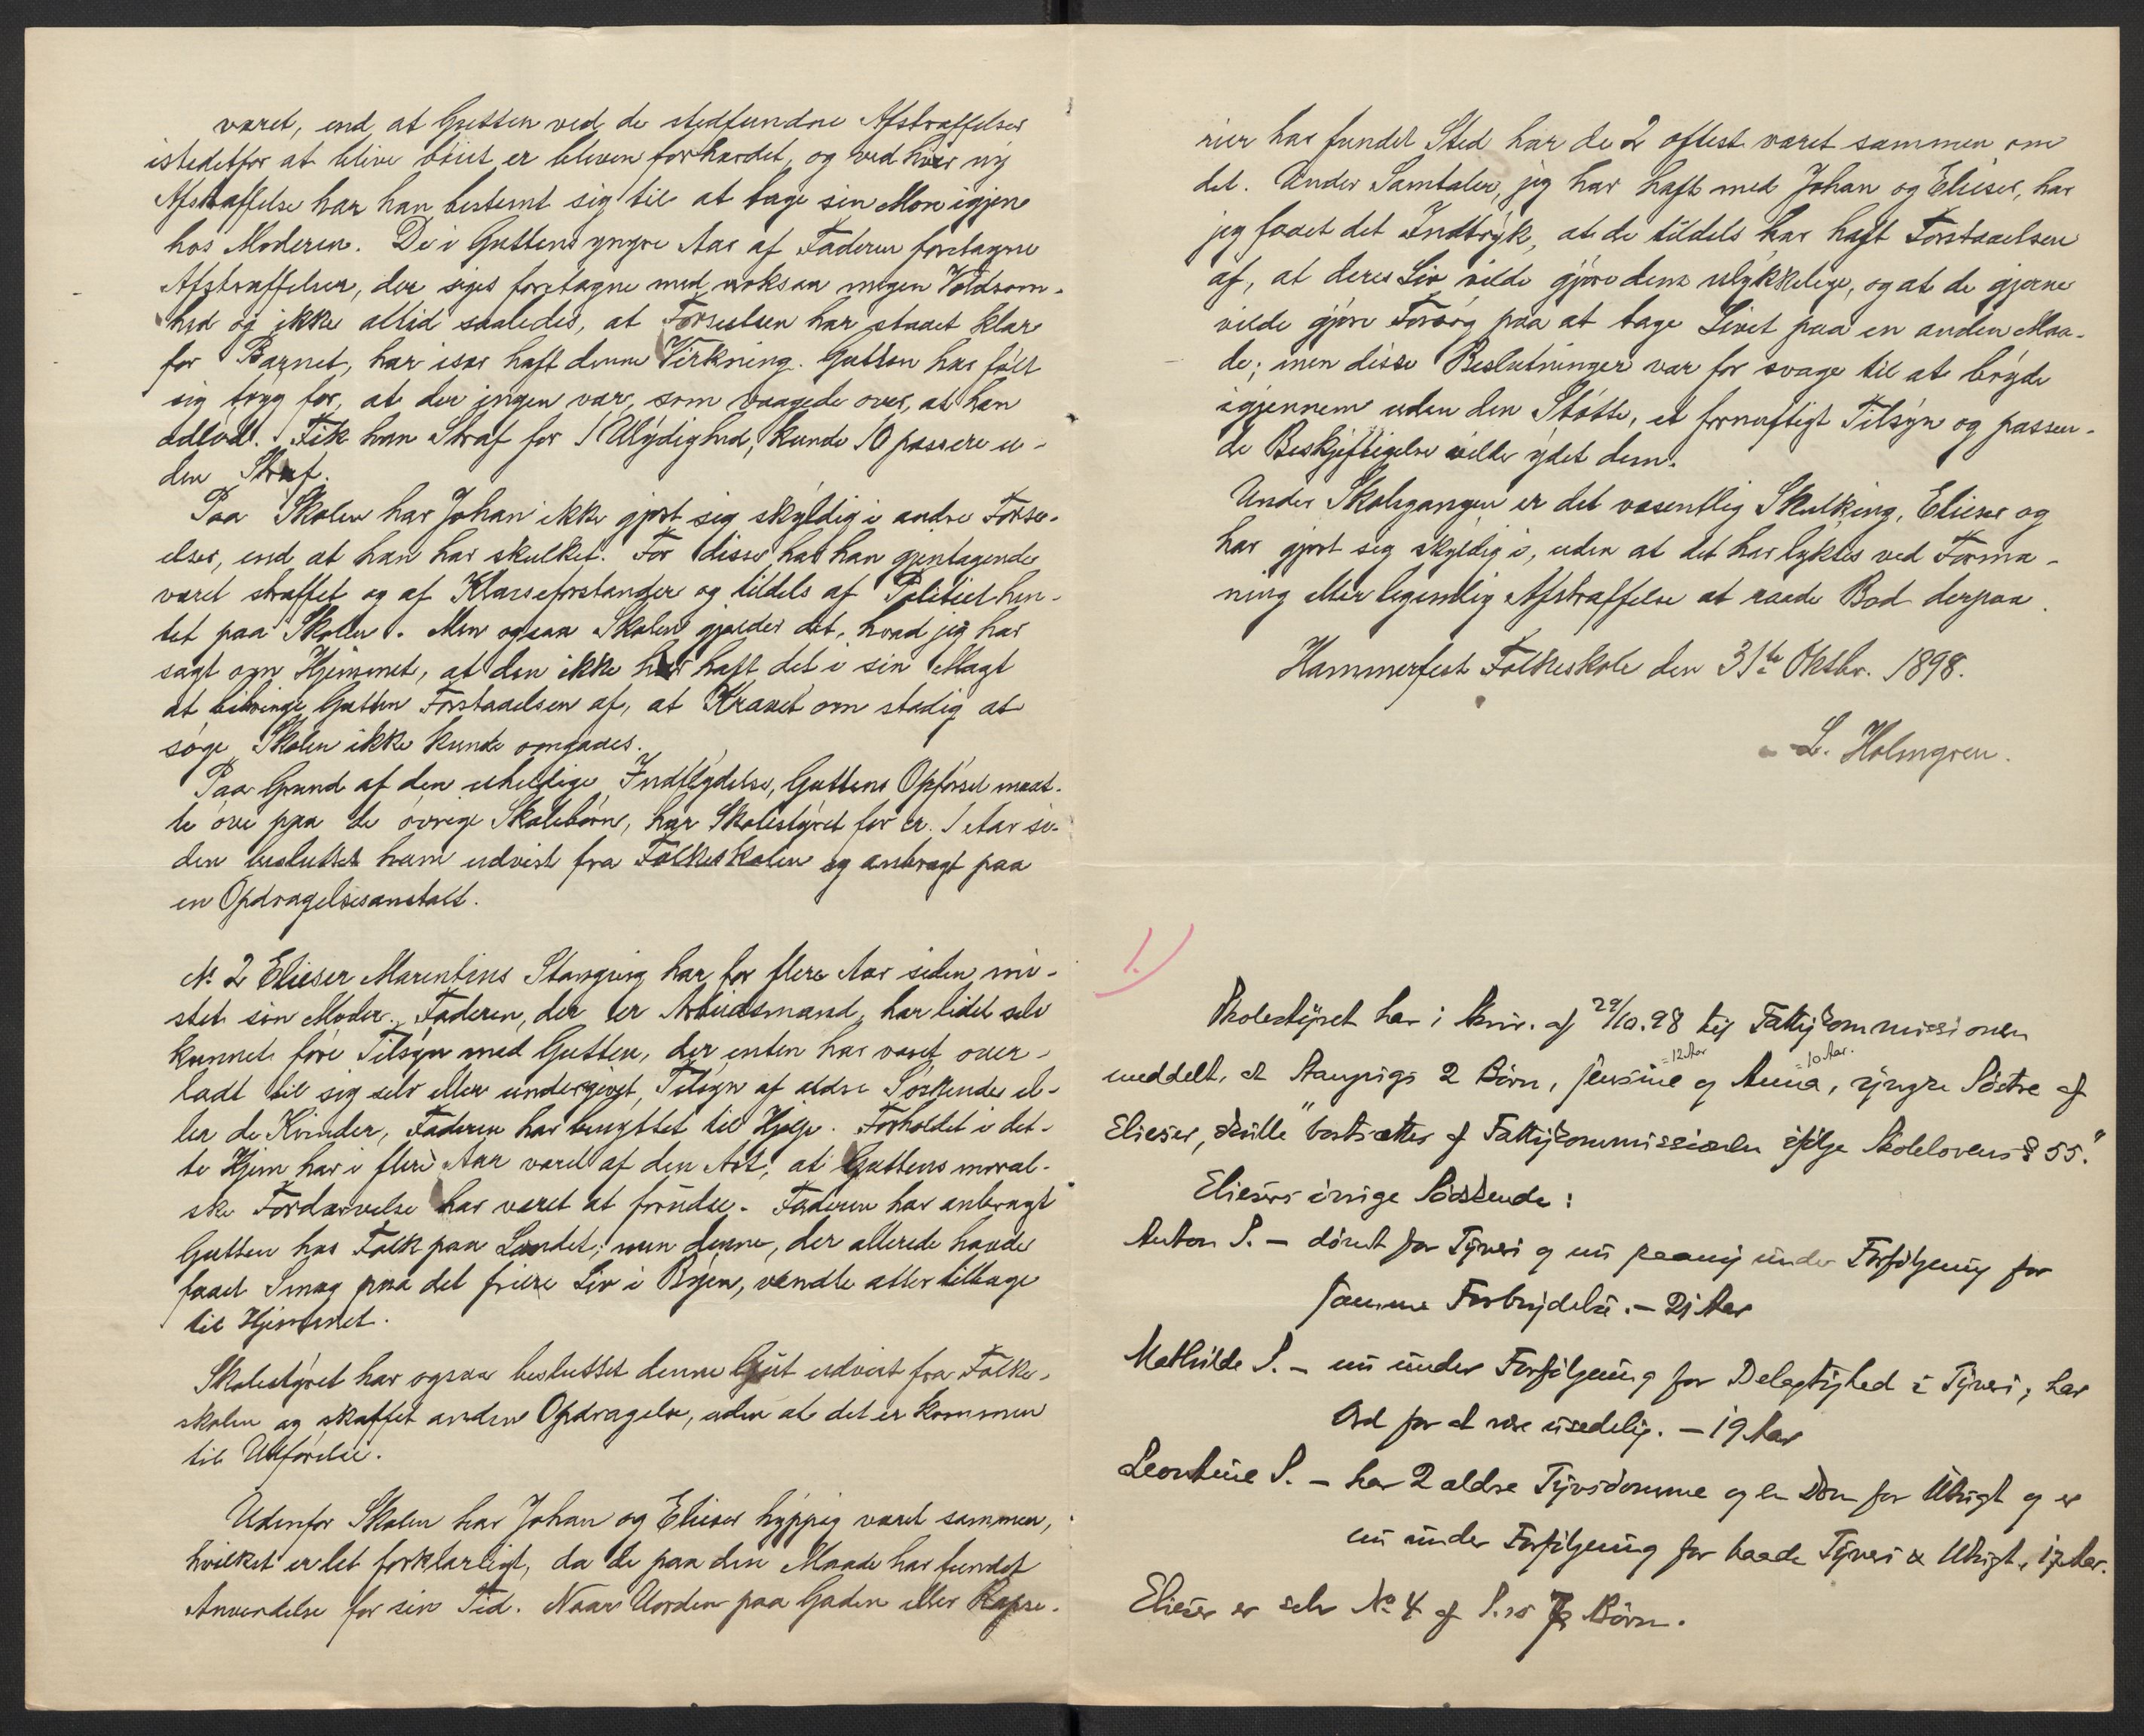 været, end at Gutten ved de stedfundne Afstraffelser
istedetfor at blive bøiet er bleven forhærdet, og ved hver ny
Afstraffelse har han bestemt sig til at tage sin Mon igjen
hos Moderen. De i Guttens yngre Aar af Faderen foretagne
Afstraffelser, der siges foretagne med noksaa megen Voldsom-
hed og ikke altid saaledes, at Forseelsen har staaet klar
for Barnet, har især haft denne Virkning. Gutten har følt
sig tryg for, at der ingen var, som vaagede over, at han
adlød. Fik han Straf for 1 Ulydighed, kunde 10 passere u-
den Straf.
Paa Skolen har Johan ikke gjort sig skyldig i andre Forse-
elser, end at han har skulket. For disse har han gjentagende
været straffet og af Klasseforstander og tildels af Politiet hen-
tet paa Skolen. Men ogsaa Skolen gjælder det, hvad jeg har
sagt om Hjemmet, at den ikke har haft det i sin Magt
at bibringe Gutten Forstaaelsen af, at Kravet om stadig at
søge Skolen ikke kunde omgaaes.
Paa Grund af den uheldige Indflydelse, Guttens Opførsel maat-
te øve paa de øvrige Skolebørn, har Skolestyret for cr. 1 Aar si-
den besluttet ham udvist fra Folkeskolen og anbragt paa
en Opdragelsesanstalt.
No 2 Elieser Marentins Stangrig har for flere Aar siden mi-
stet sin Moder. Faderen, der er Arbeidsmand, har lidet selv
kunnet føre Tilsyn med Gutten, der enten har været over-
ladt til sig selv eller undergivet Tilsyn af ældre Søskende el-
ler de Kvinder, Faderen har benyttet til Hjælp. Forholdet i det-
te Hjem har i flere Aar været af den Art, at Guttens moral-
ske Fordærvelse har været at forudse. Faderen har anbragt
Gutten hos Folk paa Landet; men denne, der allerede havde
faaet Smag paa det friere Liv i Byen, vendte atter tilbage
til Hjemmet.
Skolestyret har ogsaa besluttet denne Gut udvist fra Folke-
skolen og skaffet anden Opdragelse, uden at det er kommen
til Udførelse.
Udenfor Skolen har Johan og Elieser hyppig været sammen,
hvilket er let forklarligt, da de paa den Maade har fundet
Anvendelse for sin Tid. Naar Uorden paa Gaden eller Rapse-
rier har fundet Sted har de 2 oftest været sammen om
det. Under Samtaler, jeg har haft med Johan og Elieser, har
jeg faaet det Indtryk, at de tildels har haft Forstaaelsen
af, at deres Liv vilde gjøre dem ulykkelige, og at de gjerne
vilde gjøre Forsøg paa at tage Livet paa en anden Maa-
de; men disse Beslutninger var for svage til at bryde
igjennem uden den Støtte, et fornuftigt Tilsyn og passen-
de Beskjæftigelse vilde ydet dem.
Under Skolegangen er det væsentlig Skulking, Elieser og
har gjort sig skyldig i, uden at det har lyktes ved Forma-
ning eller legemlig Afstraffelse at raade Bod derpaa.
Hammerfest Folkeskole den 31te Oktbr. 1898.
L. Holmgren.
1.)
Skolestyret har i Skriv. af 29/10.98 til Fattigkommissionen
meddelt, at 2 Børn, Jensine =12 Aar og Anna 10 Aar., yngre Søstre af
Elieser, skulle "bortsættes af Fattigkommissionen ifølge Skolelovens § 55."
Eliesers øvrige Søskende:
Anton S. – dømt for Tyveri og nu paany under Forfølgning for
samme Forbrydelse. – 21 Aar
Mathilde S. – nu under Forfølgning for Delagtighed i Tyveri, har
Ord for at være usedelig. – 19 Aar
Leontine S. – har 2 ældre Tyvsdomme og en Dom for Utugt og er
nu under Forfølgning for baade Tyveri & Utugt, 17 Aar.
Elieser er selv No 4 af S.s 7 Børn.